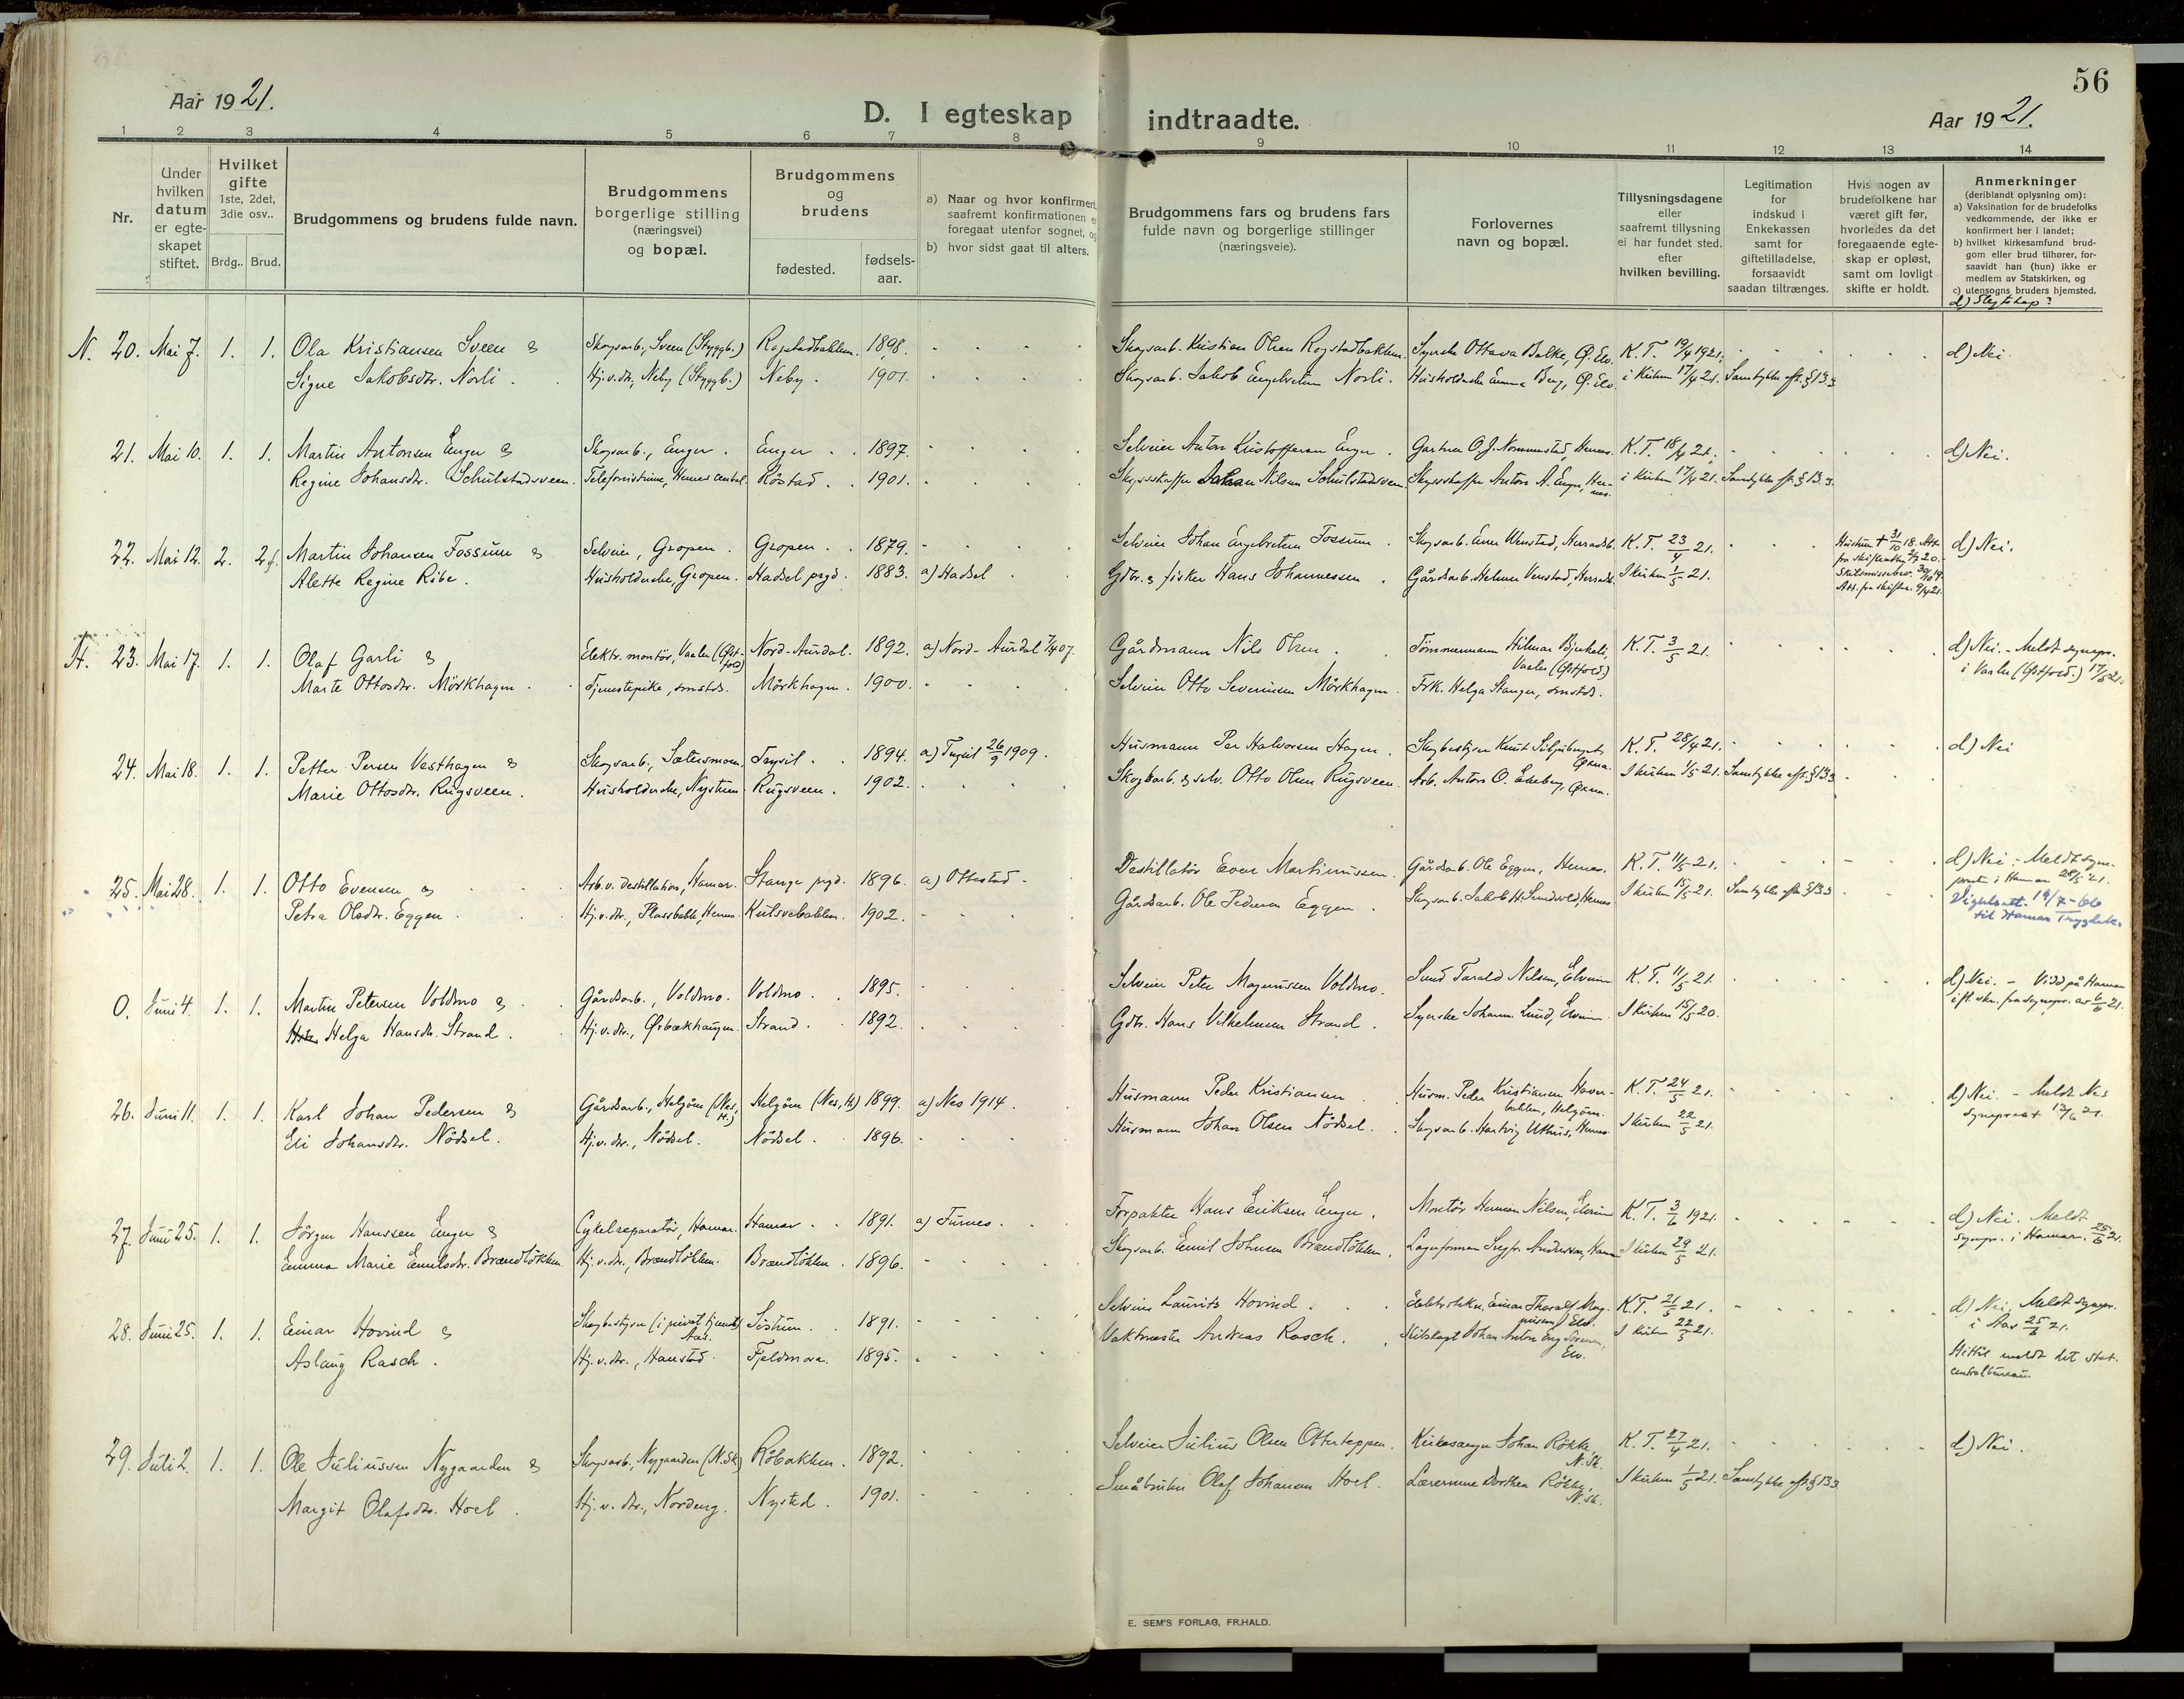 56
Aar 1921.
D. I egteskap indtraadte.
Aar 1921.
1 2 3 4 5 6 7 8 9 10 11 12 13 14
Nr.
Under hvilken datum er egteskapet stiftet.
Hvilket gifte 1ste, 2det, 3die osv..
Brdg.. Brud.
Brudgommens og brudens fulde navn.
Brudgommens borgerlige stilling (næringsvei) og bopæl.
Brudgommens og brudens
fødested.
fødsels-aar.
a) Naar og hvor konfirmert, saafremt konfirmationen er foregaat utenfor sognet, og
b) hvor sidst gaat til alters.
Brudgommens fars og brudens fars fulde navn og borgerlige stillinger (næringsveie).
Forlovernes navn og bopæl.
Tillysningsdagene eller saafremt tillysning ei har fundet sted, efter hvilken bevilling.
Legitimation for indskud i Enkekassen samt for giftetilladelse, forsaavidt saadan tiltrænges.
Hvis nogen av brudefolkene har været gift før, hvorledes da det foregaaende egteskap er opløst, samt om lovligt skifte er holdt.
Anmerkninger (deriblandt oplysning om):
a) Vaksination for de brudefolks vedkommende, der ikke er konfirmert her i landet;
b) hvilket kirkesamfund brudgom eller brud tilhører, forsaavidt han (hun) ikke er medlem av Statskirken, og
c) utensogns bruders hjemsted.
d) Slegtskap?
N. 20. Mai 7. 1. 1. Ola Kristiansen Sveen & Skogsarb., Sveen (Styggb.) Rogstadbakken. 1898. Skogsarb. Kristian Olsen Rogstadbakken. Syerske Ottava Balke, Ø. Elv. K. T. 19/4 1921. d) Nei.
Signe Jakobsdtr. Norli. Hj.v.dtr., Neby (Styggb.) Neby. 1901. Skogsarb. Jakob Engebretsen Norli. Husholderske Emma Berg, Ø. Elv. i kirken 17/4 21. Samtykke eft. § 13.3
21. Mai 10. 1. 1. Martin Antonsen Enger & Skogsarb., Enger. Enger. 1897. Selveier Anton Kristoffersen Enger. Gartner O. J. Nommestad, Hernes. K. T. 18/4 21. d) Nei.
Regine Johansdtr. Schulstadsveen. Telefonistinne, Hernes central. Røstad. 1901. Skysskaffer Johan Nilsen Schulstadsveen. Skysskaffer Anton A. Enger, Hernes. i kirken 17/4 21. Samtykke eft. § 13.3.
22. Mai 12. 2. 2f. Martin Johansen Fossum & Selveier, Gropen. Gropen. 1879. Selveier Johan Engebretsen Fossum. K. T. 23/4 21. Hustru † 31/10 18. Att. d) Nei.
Alette Regine Ribe. Husholderske, Gropen. Hadsel prgd. 1883. a) Hadsel Gdbr. & fisker Hans Johannessen. I kirken 1/5 21.
23. Mai 17. 1. 1. Olaf Garli & Elektr. montör, Vaaler (Østfold) Nord-Aurdal. 1892. a) Nord-Aurdal 7/4 07. Gårdmann Nils Olsen. Tömmermann Hilmar Bjerkeli, Vaaler (Østfold) K. T. 3/5 21. d) Nei. - Meldt sognepr. i Vaaler (Østfold.) 17/5 21.
Marte Ottosdtr. Mörkhagen. Tjenestepike, smstds. Mörkhagen. 1900. Selveier Otto Severinsen Mörkhagen. Frk. Helga Stanger, smstds.
24. Mai 18. 1. 1. Petter Persen Vesthagen & Skogsarb., Sætersmoen. Trysil. 1894. a) Trysil 26/9 1909. Husmann Per Halvorsen Hagen. K. T. 28/4 21. d) Nei
Marie Ottosdtr. Rugsveen. Husholderske, Nystuen. Rugsveen. 1902. Skogsarb. & selv. Otto Olsen Rugsveen. Arb. Anton O. Ekeberg, I kirken 1/5 21. Samtykke eft. § 13.3
25. Mai 28. 1. 1. Otto Evensen & Arb. v. destillation, Hamar. Stange prgd. 1896. a) Ottestad. Destillatör Even Martinussen. Gårdsarb. Ole Eggen, Hernes. K. T. 11/5 21. d) Nei. - Meldt sogneprest i Hamar 28/5 '21.
Petra Olsdtr. Eggen. Hj.v.dtr., Plassbakk, Hernes. Kulsvebakken. 1902. Gårdsarb. Ole Pedersen Eggen. Skogsarb. Jakob H. Sundvold, Hernes. I kirken 15/5 21. Samtykke eft. § 13.3 Vigselsatt. 14/7-66 til Hamar Trygdek.
0. Juni 4. 1. 1. Martin Petersen Voldmo & Gårdsarb., Voldmo. Voldmo. 1895. Selveier Peter Magnussen Voldmo. Smed Tarald Nilsen, Elverum K. T. 11/5 21. d) Nei. - Vidd på Hamar ifl. skr. fra sognepr. av 6/6 21.
Helga Hansdtr. Strand. Hj.v.dtr., Østbækhaugen. Strand. 1892. Gdbr. Hans Vilhelmsen Strand. Syerske Johanne Lund, Elverum. I kirken 15/5 20.
26. Juni 11. 1. 1. Karl Johan Pedersen & Gårdsarb., Helgöen (Nes, H.) Helgöen (Nes, H.) 1899. a) Nes 1914. Husmann Peder Kristiansen Husm. Peder Kristiansen Havrebakken, Helgöen. K. T. 24/5 21. d) Nei. - Meldt Nes sogneprest 13/6 21.
Eli Johansdtr. Nödsel. Hj.v.dtr., Nödsel. Nödsel. 1896. Husmann Johan Olsen Nödsel. Skogsarb. Hartvig Uthus, Hernes I kirken 22/5 21.
27. Juni 25. 1. 1. Jörgen Hanssen Enger & Cykelreparatör, Hamar. Hamar. 1891. a) Furnes. Forpakter Hans Eriksen Enger. Montör Herman Nilsen, Elverum K. T. 3/6 1921. d) Nei. Meldt sognepr. i Hamar. 25/6 21.
Emma Marie Emilsdtr. Brændlökken Hj.v.dtr., Brændlökken. Brændlökken. 1896. Skogsarb. Emil Johnsen Brændlökken. Lagerformann Andersen, Hamar I kirken 29/5 21.
28. Juni 25. 1. 1. Einar Hovind & Skogbestyrer (i privat tjeneste) Aas. 1891. Selveier Laurits Hovind. Einar Thoralf Magnussen, Elv. K. T. 21/5 21. d) Nei. Meldt sognepr. i Aas 25/6 21.
Aslaug Rasch. Hj.v.dtr., Hanstad. Fjeldmora. 1895. Vaktmester Andreas Rasch. I kirken 22/5 21. Hittil meldt det stat. centralbureau
29. Juli 2. 1. 1. Ole Juliussen Nygaarden & Skogsarb., Nygaarden (N. Sk.) Röbakken. 1892. Selveier Julius Olsen Otterteppen. Kirkesanger Johan Røkke, N. Sk. K. T. 27/4 21. d) Nei.
Margit Olafsdtr. Hoel. Hj.v.dtr., Nordeng. Nysted. 1901. Småbruker Olaf Johansen Hoel. Lærerinne Dorthea Røkke, N. Sk. I kirken 1/5 21. Samtykke eft. § 13.3
E. SEM'S FORLAG, FR.HALD.